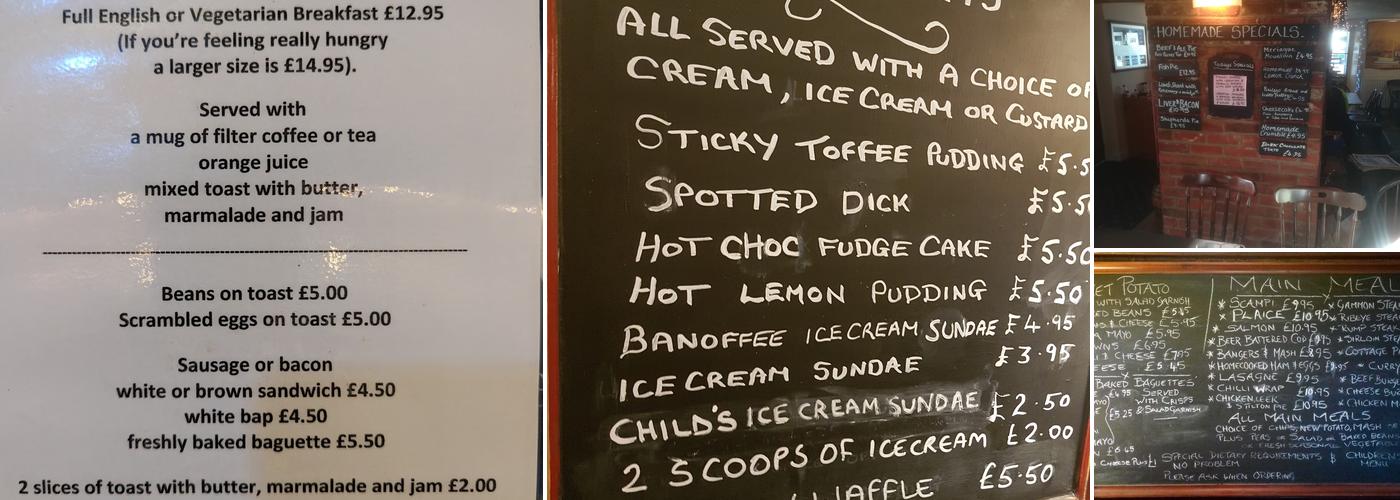 Full English or Vegetarian Breakfast £12.95
(If you're feeling really hungry
a larger size is £14.95).
Served with
a mug of filter coffee or tea
orange juice
mixed toast with butter,
marmalade and jam
Beans on toast £5.00
Scrambled eggs on toast £5.00
Sausage or bacon
white or brown sandwich £4.50
white bap £4.50
freshly baked baguette £5.50
2 slices of toast with butter, marmalade and jam £2.00
ALL SERVED WITH A CHOICE OF
CREAM, ICE CREAM OR CUSTARD
STICKY TOFFEE PUDDING £5.5
SPOTTED DICK £5.50
HOT CHOC FUDGE CAKE £5.50
HOT LEMON PUDDING £5.50
BANOFFEE ICECREAM SUNDAE £4.95
ICE CREAM SUNDAE £3.95
CHILD'S ICE CREAM SUNDAE £2.50
2 SCOOPS OF ICECREAM £2.00
WAFFLE £5.50
HOMEMADE SPECIALS.
BEEF & ALE PIE
Fish Pie
£12.95
LIVER & BACON
Shepherds Pie
Todays Specials
Meringue
Mountain £4.95
Homemade
Lemon Crunch
Cheesecake
Homemade
Crumble £4.95
DARK CHOCOLATE
£4.95
ET POTATO
WITH SALAD GARNISH
ED BEANS £5.45
& CHEESE £5.95
MAYO £5.95
WNS £6.95
CHEESE £7.95
EESE £5.45
BAKED BAGUETTES
£4.95 SERVED
WITH CRISPS
£5.25 & SALAD GARNISH
MAYO
£6.45
MAIN MEAL
* SCAMPI £9.95 * GAMMON STEA
* PLAICE £10.95 * RIBEYE STEA
* SALMON £10.95 * RUMP STEA
* BEER BATTERED COD * SIRLOIN STE
* BANGERS & MASH £8.95 * COTTAGE P
* HOMECOOKED HAM & EGGS £8.95 * CURRY
* LASAGNE £9.95 * BEEF BU
* CHILLI WRAP £10.95 * CHEESE BU
* CHICKEN, LEEK & STILTON PIE £10.95 * CHICKEN
ALL MAIN MEALS
CHOICE OF CHIPS, NEW POTATO, MASH
PLUS PEAS OR SALAD OR BAKED BEA
OR FRESH SEASONAL VEGETA
SPECIAL DIETARY REQUIREMENTS & CHILDREN
NO PROBLEM MENU
PLEASE ASK WHEN ORDERING